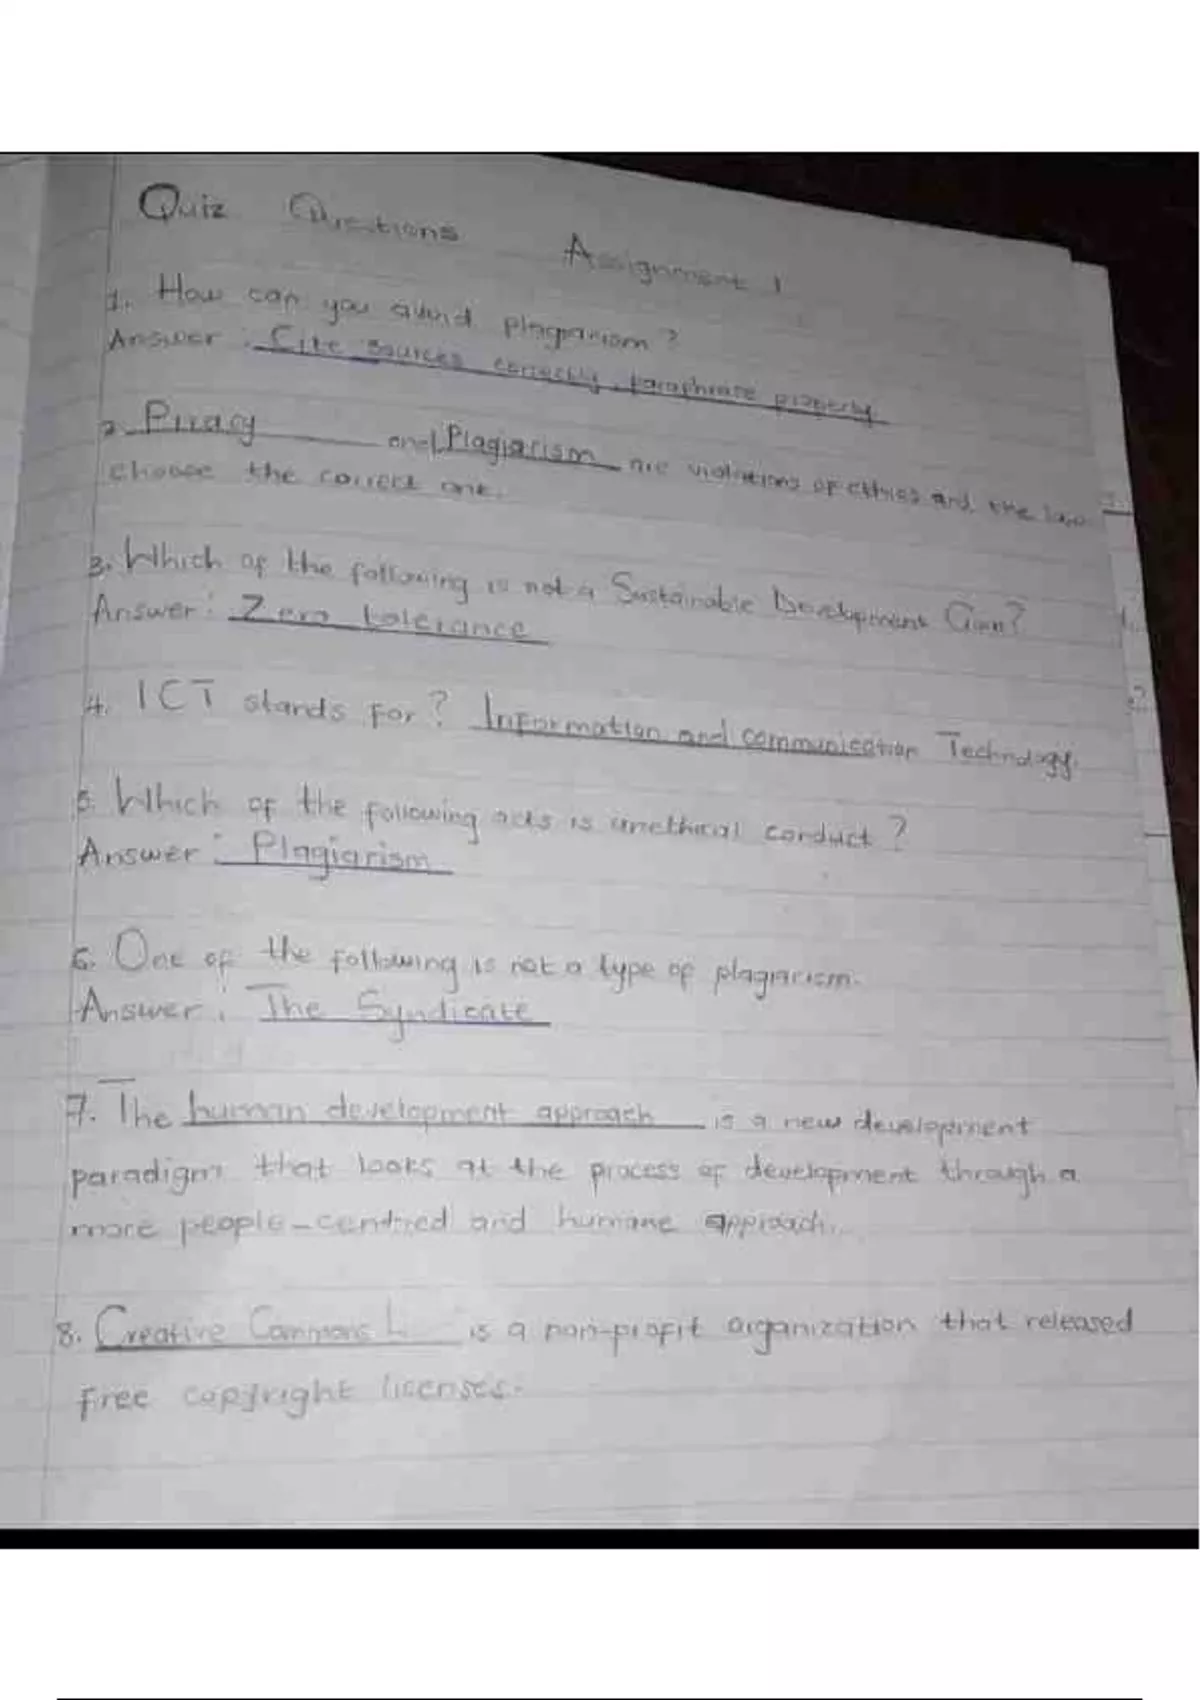 Quiz Questions Assignment 1
1. How can you avoid plagiarism?
Answer: Cite sources correctly, paraphrase properly
2. Piracy and Plagiarism are violations of ethics and the law
choose the correct one.
3. Which of the following is not a Sustainable Development Goan?
Answer: Zero tolerance
4. ICT stands for? Information and communication Technology.
5. Which of the following acts is unethical conduct?
Answer: Plagiarism
6. One of the following is not a type of plagiarism.
Answer: The Syndicate
7. The human development approach is a new development
paradigm that looks at the process of development through a
more people-centred and humane approach.
8. Creative Commons is a non-profit organization that released
free copyright licenses.